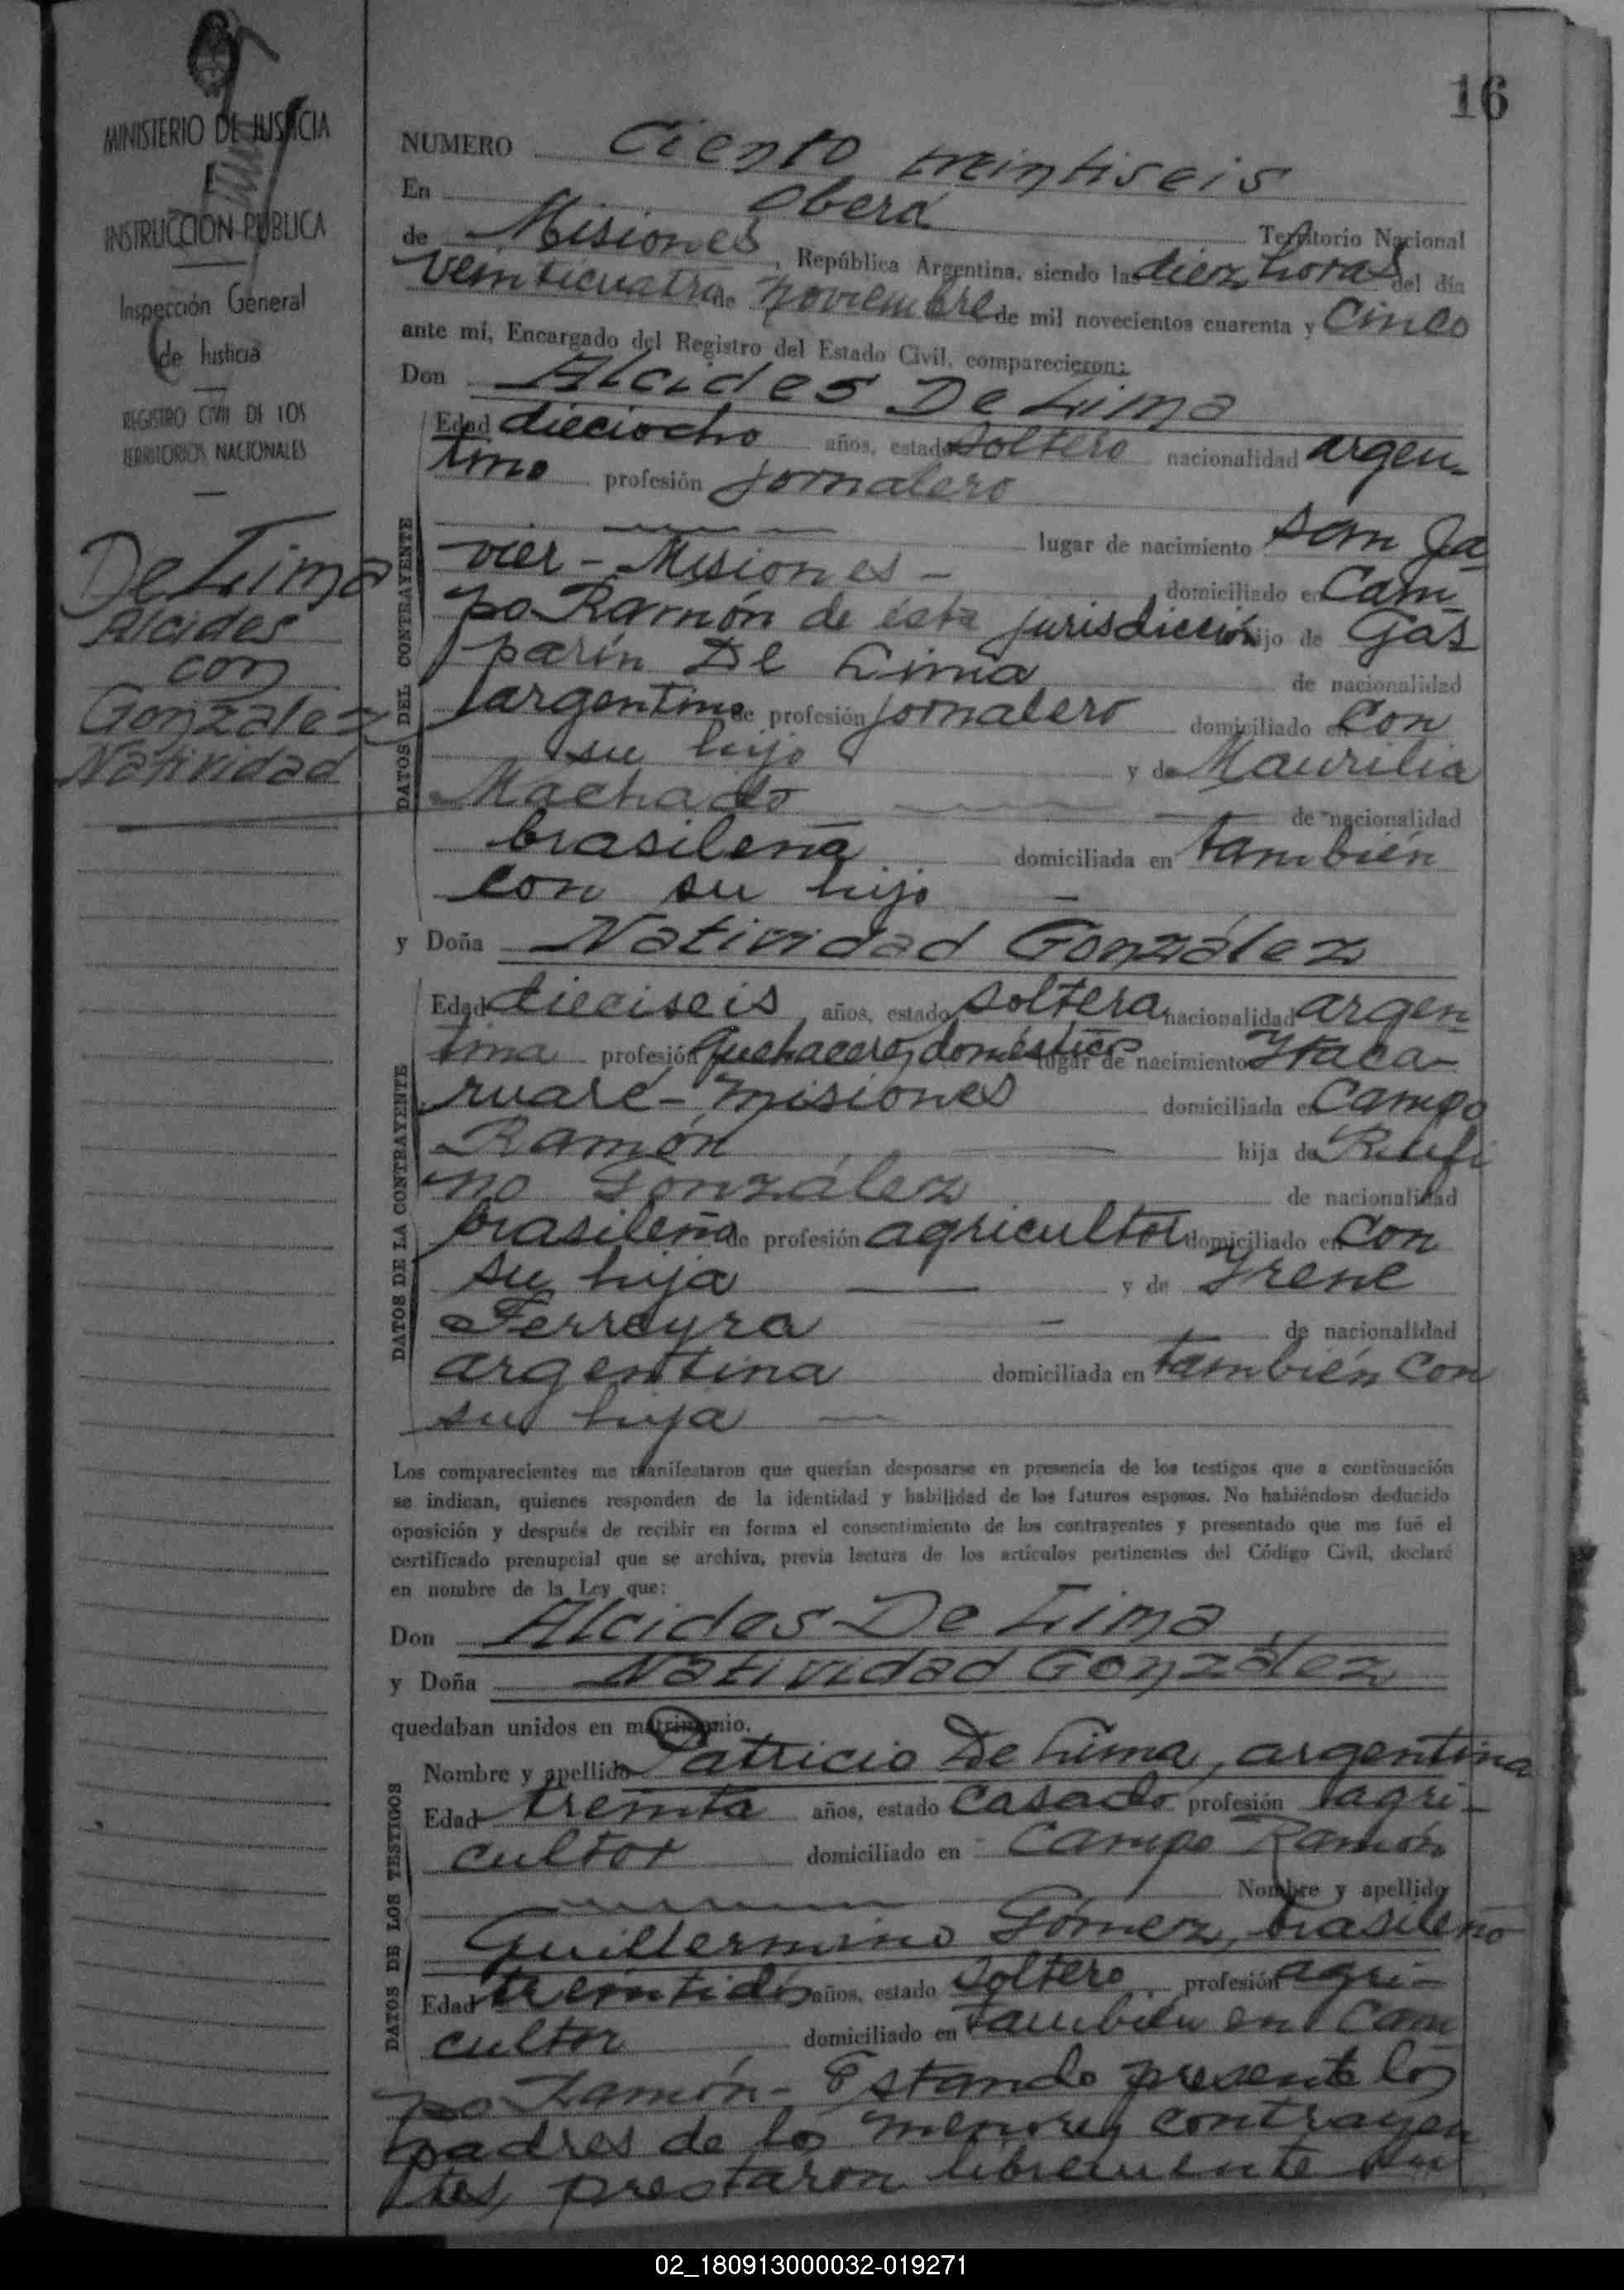 16
MINISTERIO DE JUSTICIA
E
INSTRUCCION PUBLICA
Inspección General
de Justicia
REGISTRO CIVIL DE LOS
TERRITORIOS NACIONALES
De Lima
Alcides
con
Gonzalez
Natividad
NUMERO Ciento treintiseis
En Oberá
de Misiones Territorio Nacional
, República Argentina, siendo las diez horas del día
veinticuatro de noviembre de mil novecientos cuarenta y cinco
ante mí, Encargado del Registro del Estado Civil, comparecieron:
Don Alcides De Lima
DATOS DEL CONTRAYENTE
Edad dieciocho años, estado soltero nacionalidad argen-
tino profesión jornalero
lugar de nacimiento San Ja
vier - Misiones - domiciliado en Cam-
po Ramón de esta jurisdicción hijo de Gas
parín De Lima de nacionalidad
argentino de profesión jornalero domiciliado en con
su hijo y de Maurilia
Machado de nacionalidad
brasileña domiciliada en también
con su hijo
y Doña Natividad González
DATOS DE LA CONTRAYENTE
Edad dieciseis años, estado soltera nacionalidad argen
tina profesión quehaceres domésticos lugar de nacimiento Itaca-
ruaré - Misiones domiciliada en Campo
Ramón hija de Rufi
no González de nacionalidad
brasileña de profesión agricultor domiciliado en con
su hija y de Irene
Ferreyra de nacionalidad
argentina domiciliada en también con
su hija
Los comparecientes me manifestaron que querían desposarse en presencia de los testigos que a continuación
se indican, quienes responden de la identidad y habilidad de los futuros esposos. No habiéndose deducido
oposición y después de recibir en forma el consentimiento de los contrayentes y presentado que me fué el
certificado prenupcial que se archiva, previa lectura de los artículos pertinentes del Código Civil, declaré
en nombre de la Ley que:
Don Alcides De Lima
y Doña Natividad González
quedaban unidos en matrimonio.
DATOS DE LOS TESTIGOS
Nombre y apellido Patricio De Lima, argentina
Edad treinta años, estado casado profesión agri-
cultor domiciliado en Campo Ramón
Nombre y apellido
Guillermino Gómez, brasileño
Edad treintidós años, estado soltero profesión agri-
cultor domiciliado en también en Cam
po Ramón - Estando presente los
padres de los menores contrayen
tes, prestaron libremente su
02_180913000032-019271